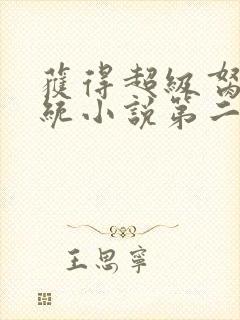 獲得超級
統小說第二
王思寧